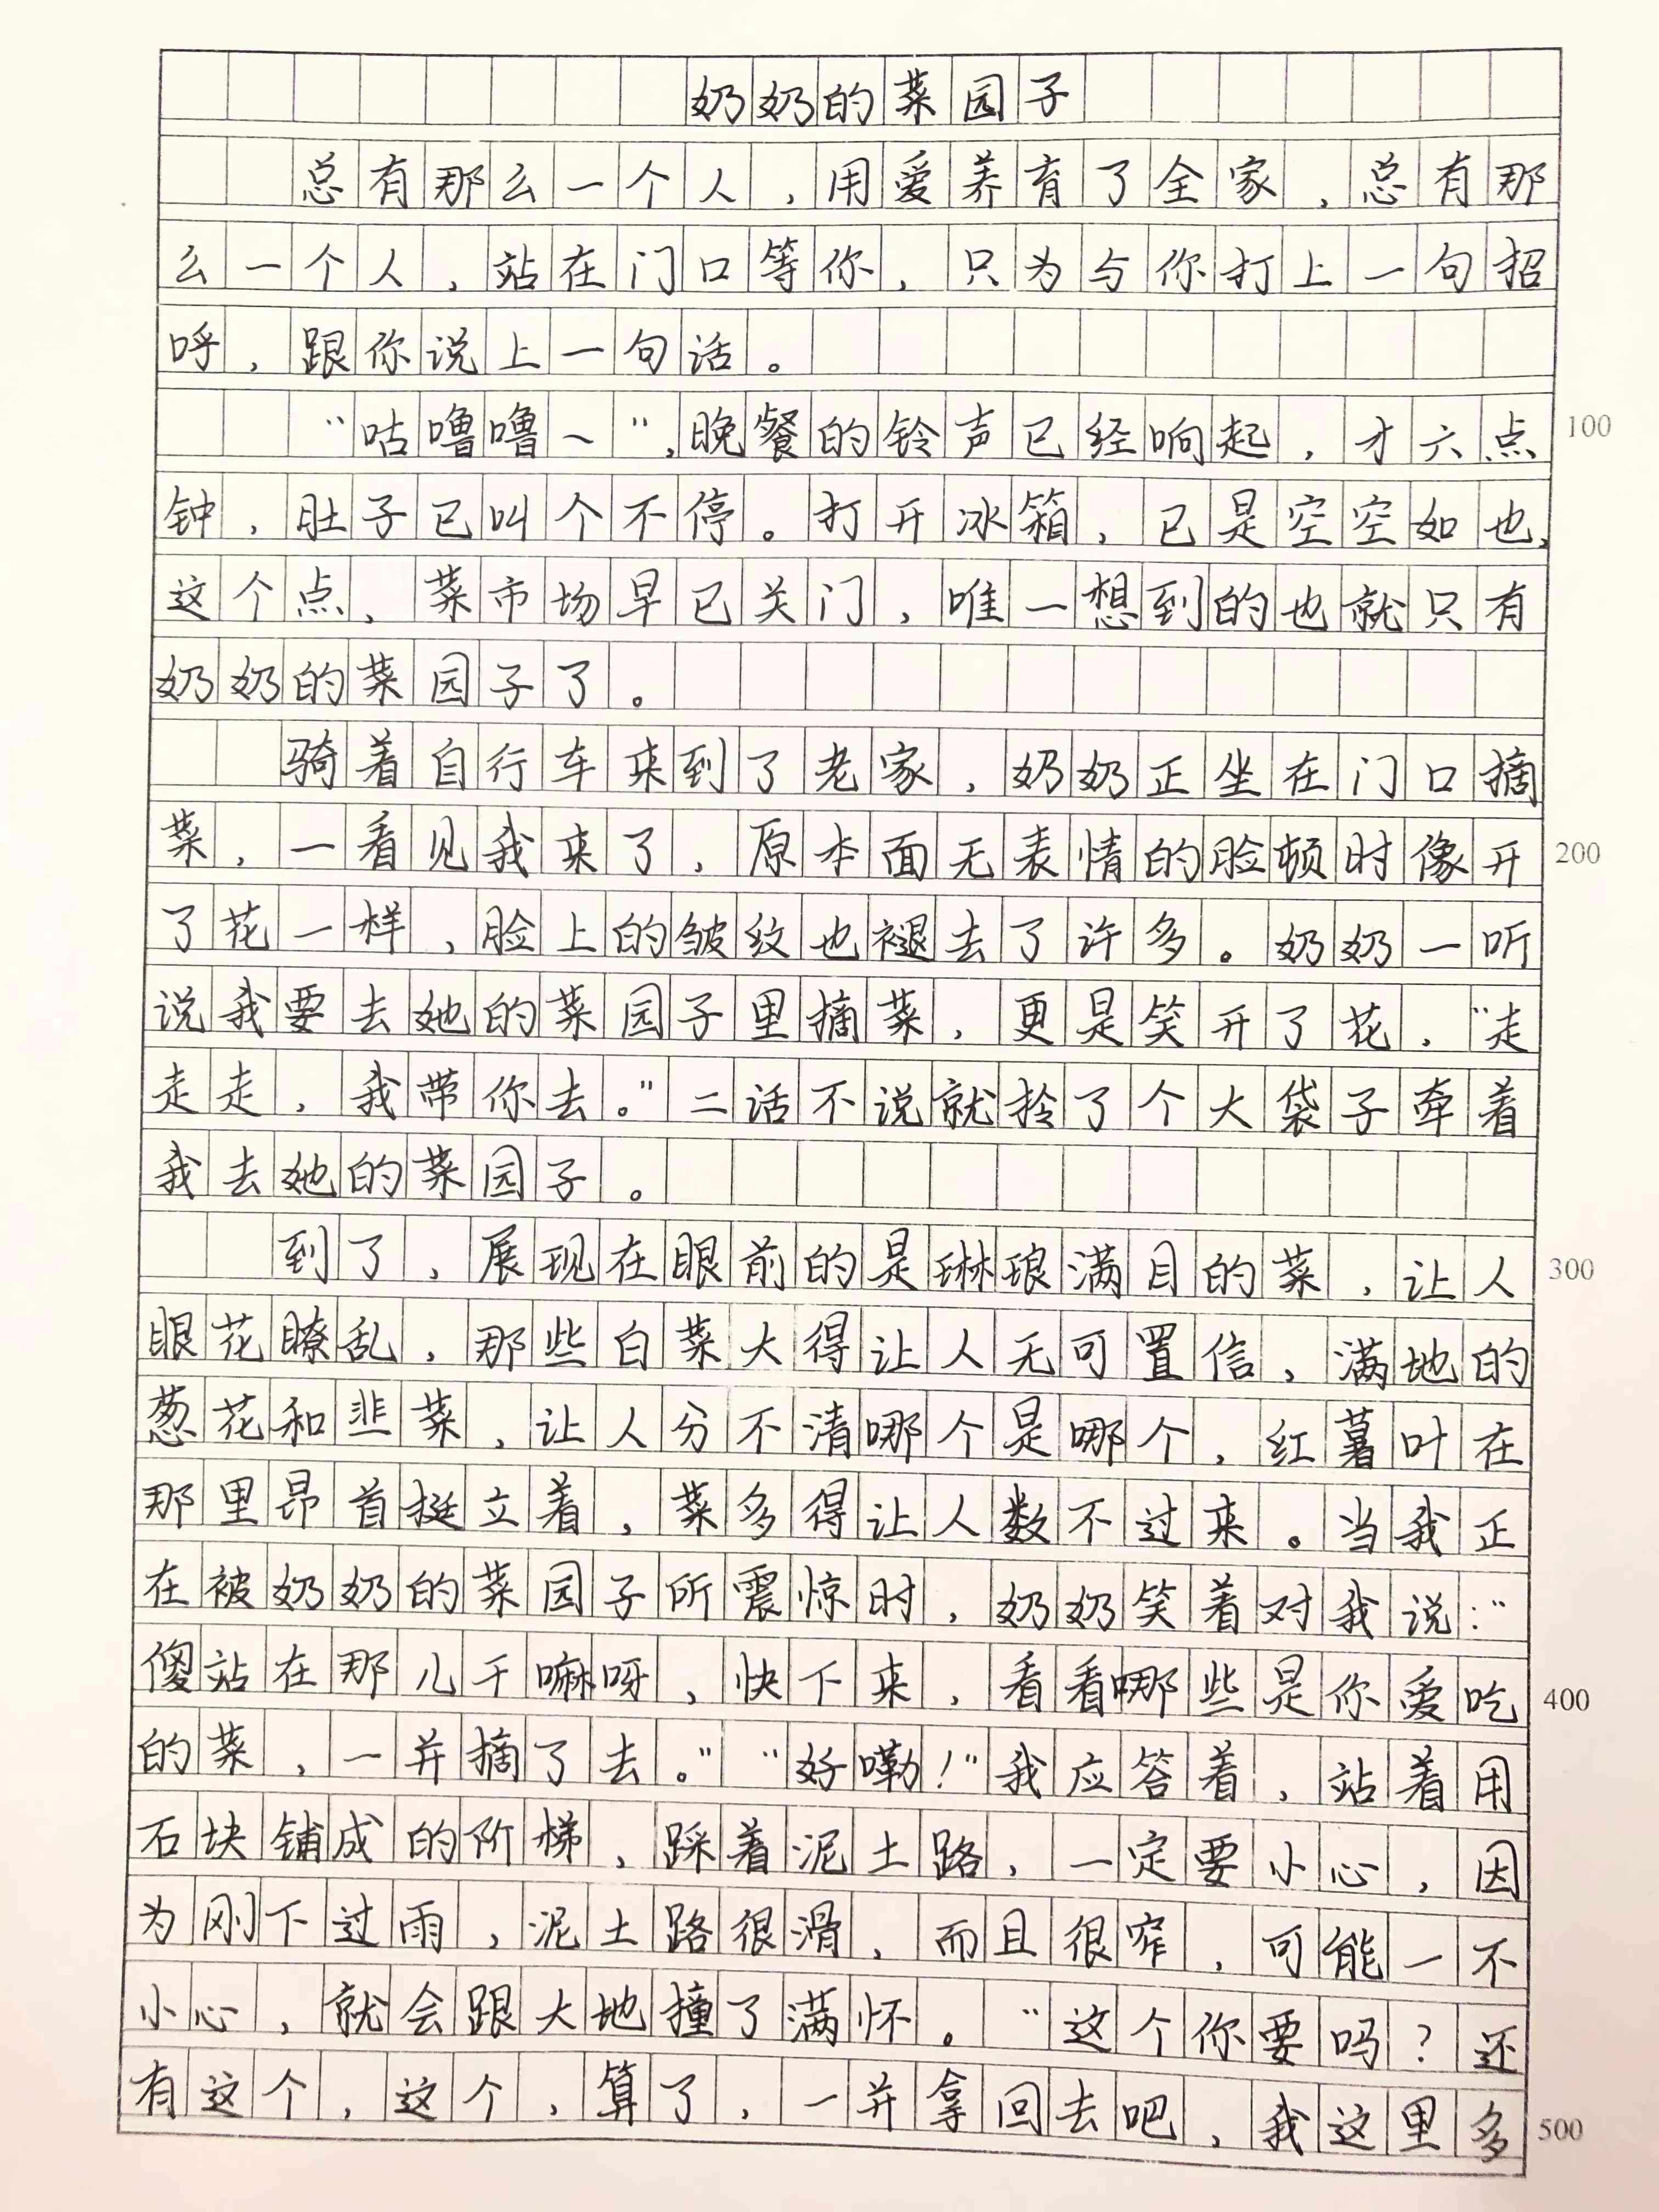 奶奶的菜园子
总有那么一个人，用爱养育了全家，总有那
么一个人，站在门口等你，只为与你打上一句招
呼，跟你说上一句话。
“咕噜噜～”，晚餐的铃声已经响起，才六点 100
钟，肚子已叫个不停。打开冰箱，已是空空如也，
这个点，菜市场早已关门，唯一想到的也就只有
奶奶的菜园子了。
骑着自行车来到了老家，奶奶正坐在门口摘
菜，一看见我来了，原本面无表情的脸顿时像开 200
了花一样，脸上的皱纹也褪去了许多。奶奶一听
说我要去她的菜园子里摘菜，更是笑开了花，“走
走走，我带你去。”二话不说就拎了个大袋子牵着
我去她的菜园子。
到了，展现在眼前的是琳琅满目的菜，让人 300
眼花瞭乱，那些白菜大得让人无可置信，满地的
葱花和韭菜，让人分不清哪个是哪个，红薯叶在
那里昂首挺立着，菜多得让人数不过来。当我正
在被奶奶的菜园子所震惊时，奶奶笑着对我说：“
傻站在那儿干嘛呀，快下来，看看哪些是你爱吃 400
的菜，一并摘了去。”“好嘞！”我应答着，站着用
石块铺成的阶梯，踩着泥土路，一定要小心，因
为刚下过雨，泥土路很滑，而且很窄，可能一不
小心，就会跟大地撞了满怀。“这个你要吗？还
有这个，这个，算了，一并拿回去吧，我这里多 500